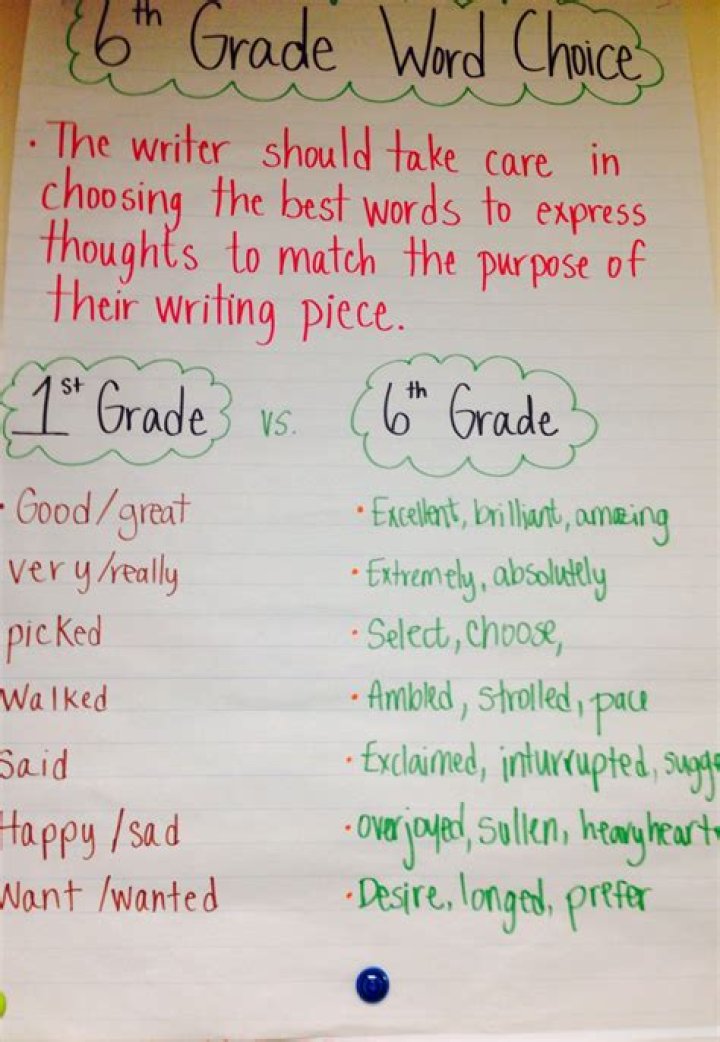 6th Grade Word Choice
· The writer should take care in
choosing the best words to express
thoughts to match the purpose of
their writing piece.
1st Grade vs. 6th Grade
· Good/great · Excellent, brilliant, amazing
very/really · Extremely, absolutely
picked · Select, choose,
Walked · Ambled, strolled, pace
Said · Exclaimed, inturrupted, sugge
Happy/sad · overjoyed, sullen, heavyheart
Want/wanted · Desire, longed, prefer